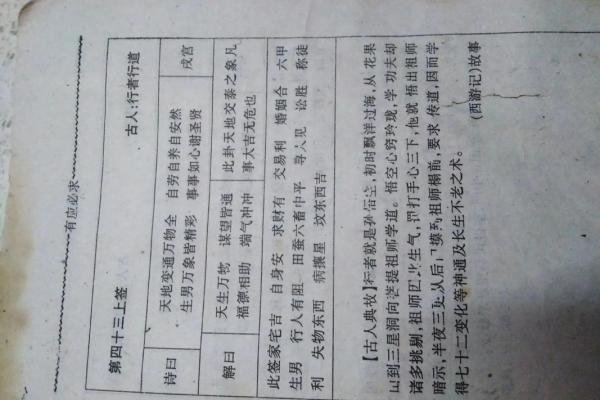 有应必求
第四十三上签 古人:行者行道
诗曰 天地变通万物全 自劳自养自安然 戌宫
生男万象皆精彩 事事如心谢圣贤
解曰 天生万物 谋望皆通 此卦天地交泰之象凡
福德相助 喘气冲冲 事大吉无危也
此签家宅吉 自身安 求财有 交易利 婚姻合 六甲
生男 行人有阻 田蚕六畜中平 寻人见 讼胜 称徒
利 失物东西 病攘星 坟东西吉
【古人典故】行者就是孙悟空,初时飘洋过海,从花果
山到三星洞向菩提祖师学道。悟空心窍玲珑,学功夫却
诸多挑剔,祖师因此生气,罚打手心三下,他就悟出祖师
暗示,半夜三更从后门摸到祖师榻前,要求传道,因而学
得七十二变化等神通及长生不老之术。
(西游记)故事